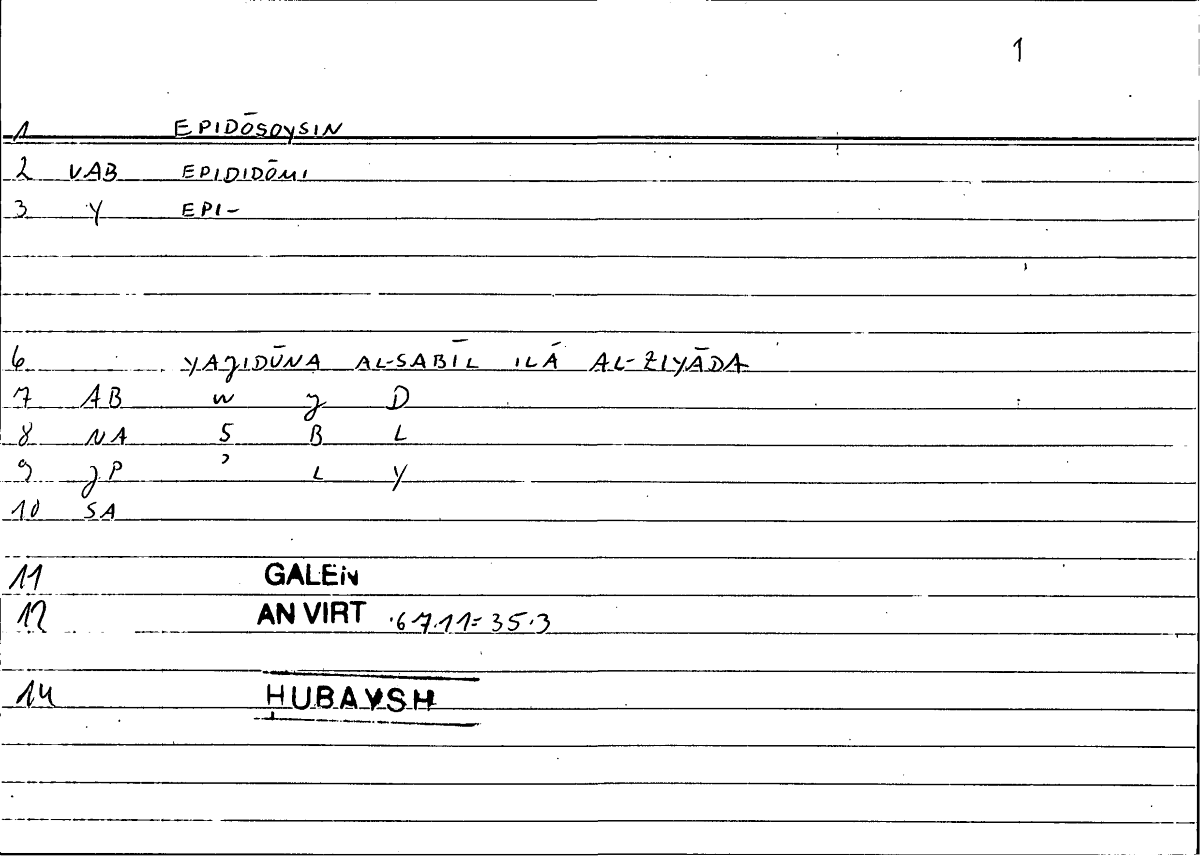 1
1 EPIDŌSOYSIN
2 VAB EPIDIDŌMI
3 Y EPI-
6 YAJIDŪNA AL-SABĪL ILÁ AL-ZIYĀDA
7 AB W J D
8 NA S B L
9 JP ʾ L Y
10 SA
11 GALEiN
12 AN VIRT .67.11=35.3
14 HUBAYSH